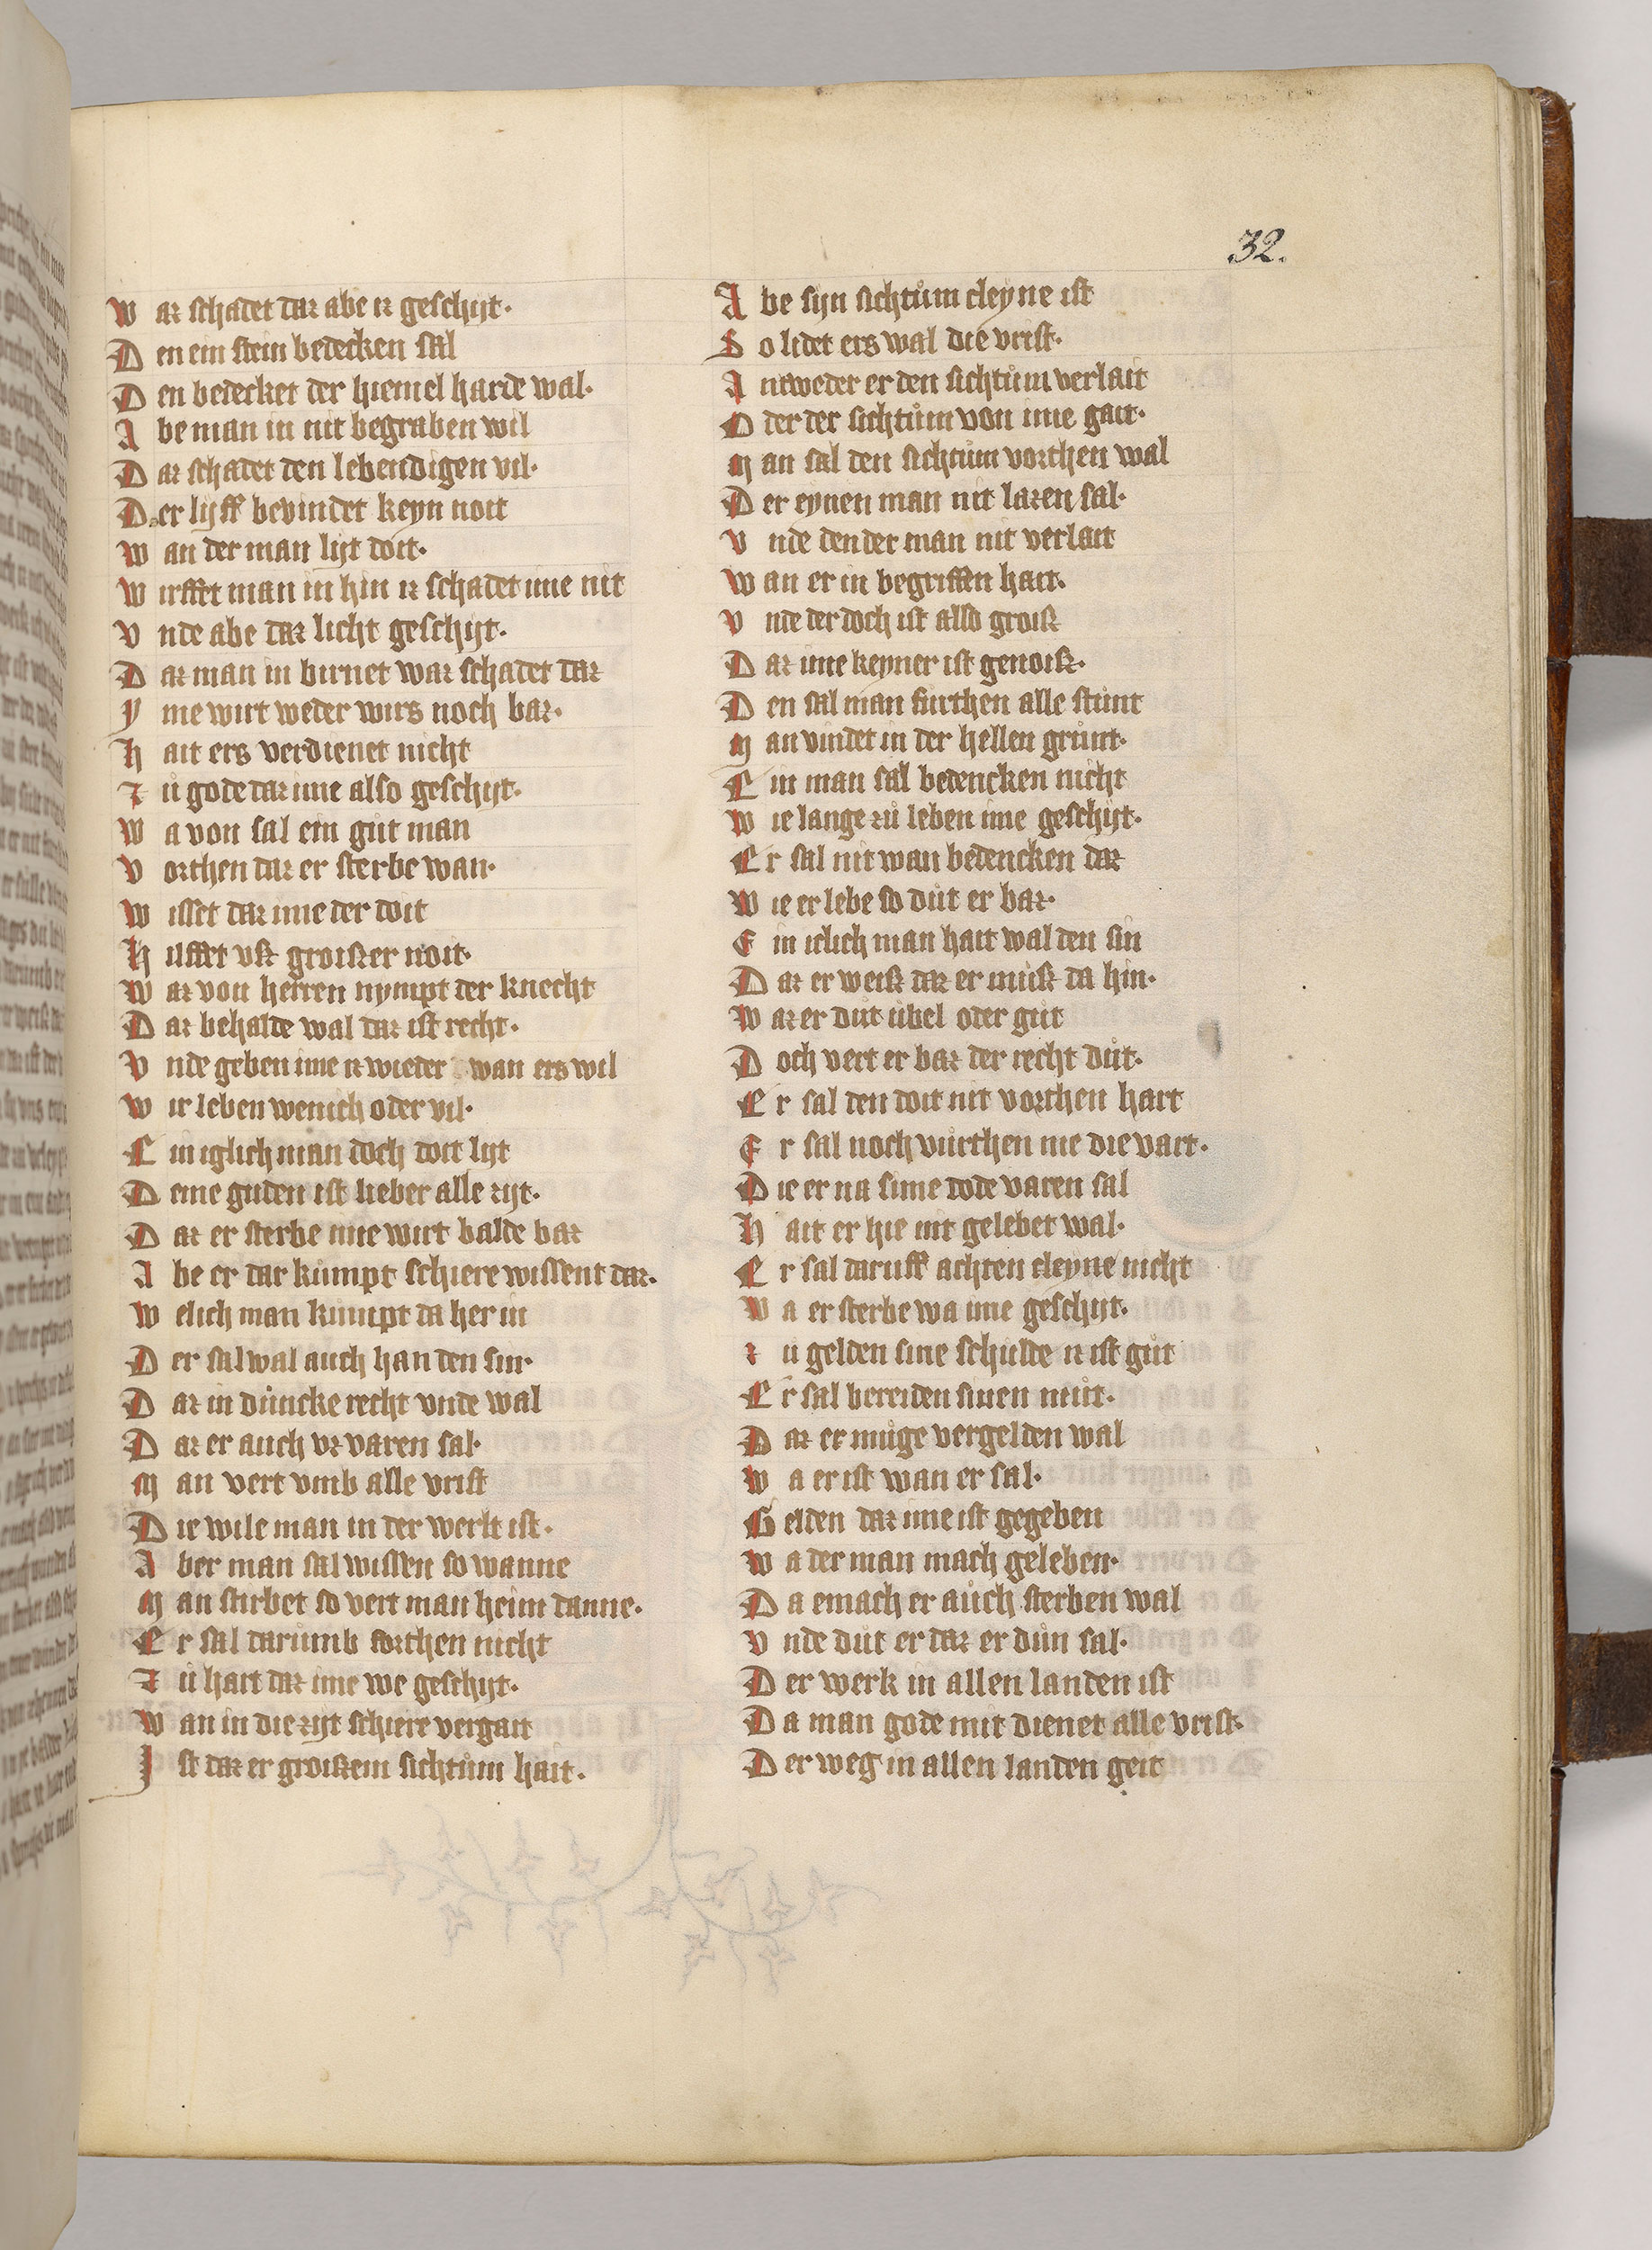 32.
War schadet daz abe iz geschijt.
Den ein stein bedecken sal
Den bedecket der hiemel harde wal.
Abe man in nit begraben wil
Daz schadet den lebendigen vil.
Der lijff bevindet keyn noit
Wan der man lijt doit.
Wirffet man in hin iz schadet ime nit
Vnde abe daz licht geschijt.
Daz man in birnet waz schadet daz
Yme wirt weder wirs noch baz.
Hait ers verdienet nicht
Zů gode daz ime also geschijt.
Wa von sal ein gůt man
Vorthen daz er sterbe wan.
Wisset daz ime der doit
Hilffet vß groißer noit.
Waz von herren nympt der knecht
Daz behalde wal daz ist recht.
Vnde geben ime iz wieder wan ers wil
Wir leben wenich oder vil.
Ein iglich man doch doit lijt
Deme guden ist lieber alle zijt.
Daz er sterbe ime wirt balde baz
Abe er dar kůmpt schiere wissent daz.
Welich man kůmpt da her in
Der sal wal auch han den sin.
Daz in důncke recht vnde wal
Daz er auch vz varen sal.
Man vert vmb alle vrist
Die wile man in der werlt ist.
Aber man sal wissen so wanne
Man stirbet so vert man heim danne.
Er sal darůmb forthen nicht
Zů hart daz ime we geschijt.
Wan in die zijt schiere vergait
Ist daz er groißem sichtům hait.
Abe sijn sichtům cleyne ist
So lidet ers wal die vrist.
Antweder er den sichtům verlait
Oder der sichtům von ime gait.
Man sal den sichtům vorthen wal
Der eynen man nit lazen sal.
Vnde den der man nit verlait
Wan er in begriffen hait.
Vnde der doch ist also groiß
Daz ime keyner ist genoiß.
Den sal man fůrthen alle stůnt
Man vindet in der hellen grůnt.
Ein man sal bedencken nicht
Wie lange zů leben ime geschijt.
Er sal nit wan bedencken daz
Wie er lebe so důt er baz.
Ein iclich man hait wal den sin
Daz er weiß daz er můß da hin.
Waz er důt ůbel oder gůt
Doch vert er baz der recht důt.
Er sal den doit nit vorthen hart
Er sal noch vůrthen me die vart.
Die er na sime dode varen sal
Hait er hie nit gelebet wal.
Er sal daruff achten cleyne nicht
Wa er sterbe wa ime geschijt.
Zů gelden sine schůlde iz ist gůt
Er sal bereiden sinen můt.
Daz er můge vergelden wal
Wa er ist wan er sal.
Gelden daz ime ist gegeben
Wa der man mach geleben.
Da emach er aůch sterben wal
Vnde důt er daz er důn sal.
Der werk in allen landen ist
Da man gode mit dienet alle vrist.
Der weg in allen landen geit